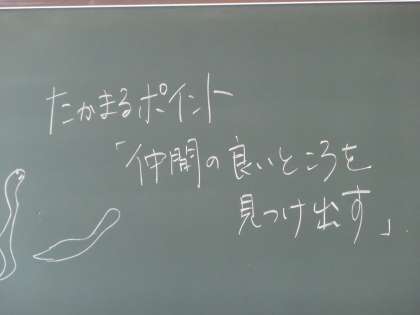 たかまるポイント
「仲間の良いところを
見つけ出す」